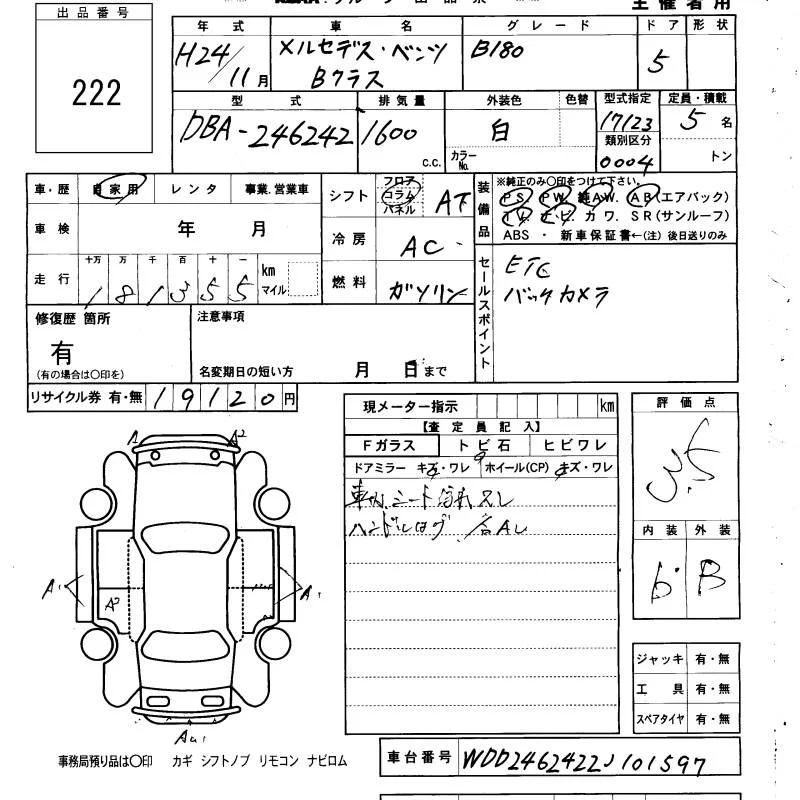 主催者用
出品番号
222
年式 車名 グレード ドア 形状
H24/11月 メルセデス・ベンツ Bクラス B180 5
型式 排気量 外装色 色替 型式指定 定員・積載
DBA-246242 1600 c.c. 白 カラーNo. 17123 5名
類別区分
0004 トン
車・歴 自家用 レンタ 事業.営業車
シフト フロア コラム パネル AT
装備品 ※純正のみ〇印をつけて下さい。
PS. PW. 純AW. AB(エアバック)
TV. ナビ カワ. SR(サンルーフ)
ABS ・ 新車保証書←(注) 後日送りのみ
車検 年 月
冷房 AC
走行 十万 万 千 百 十 一
181355 km マイル
燃料 ガソリン
セールスポイント
ETC
バックカメラ
修復歴 箇所
有
(有の場合は〇印を)
注意事項
名変期日の短い方 月 日まで
リサイクル券 有・無 19120円
現メーター指示 km
【査定員記入】
Fガラス トビ石 ヒビワレ
ドアミラー キズ・ワレ ホイール(CP) キズ・ワレ
車内、シート汚れスレ
ハンドル
評価点
3.5
内装 外装
6 B
A A2
A1 A2 A1
ジャッキ 有・無
工具 有・無
スペアタイヤ 有・無
事務局預り品は〇印 カギ シフトノブ リモコン ナビロム
車台番号 WDD2462422J101597